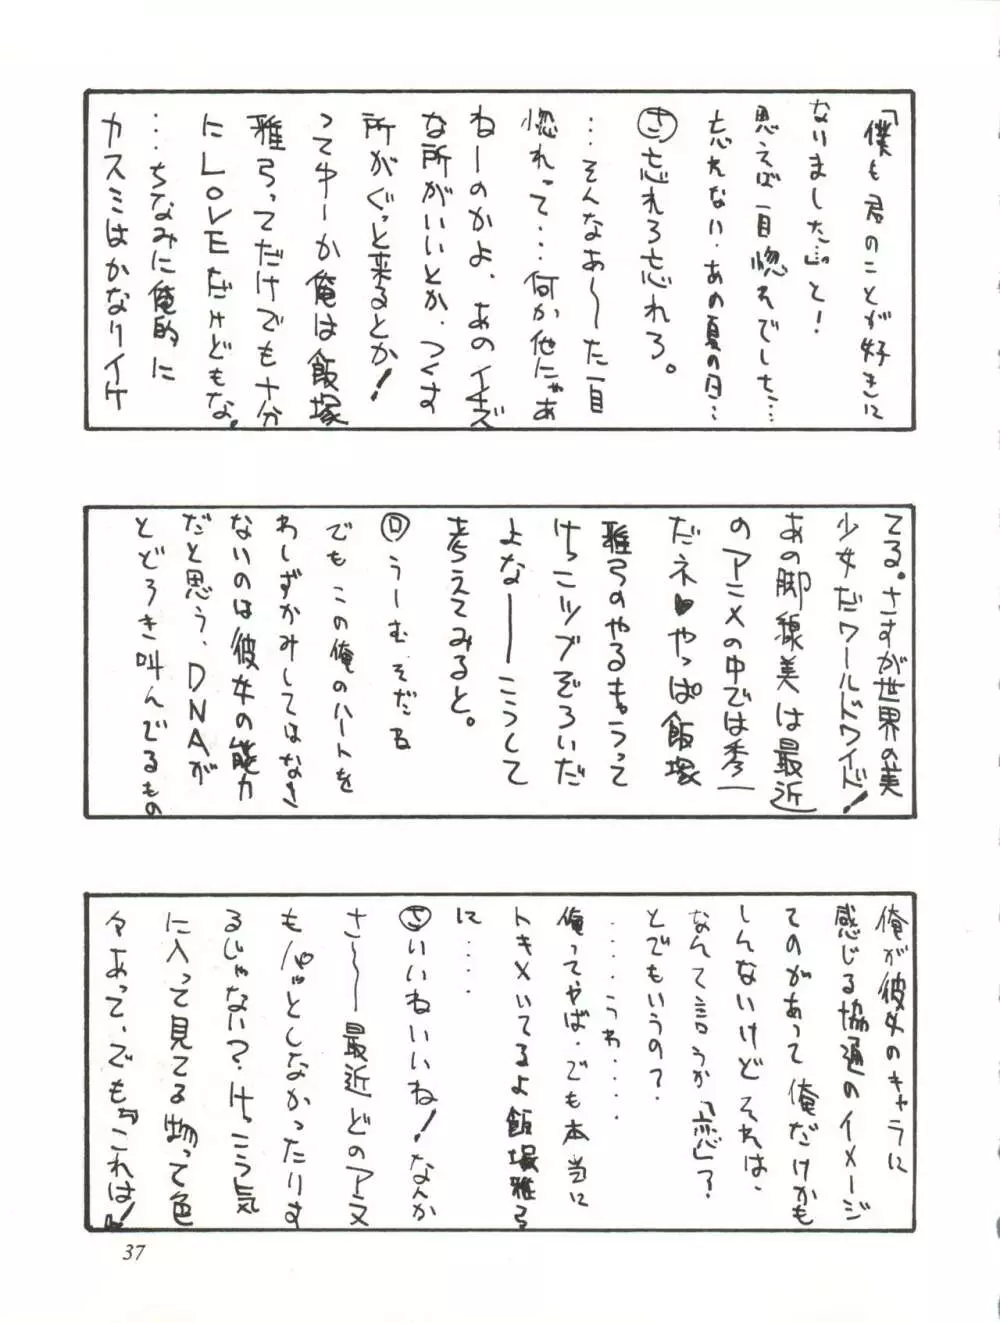 「僕も君のことが好きに
なりました…。」と!
思えば一目惚れでした…
忘れない・あの夏の日…
㋚忘れろ忘れろ。
…そんなあ〜〜た一目
惚れって…何か他にゃあ
ねーのかよ。あのイキズ
な所がいいとか、つくす
所がぐっと来るとか!
ってゆーか俺は飯塚
雅弓ってだけでも十分
にLOVEだけどもな。
…ちなみに俺的に
カスミはかなりイケ
てる。さすが世界の美
少女だワールドワイド!
あの脚線美は最近
のアニメの中では秀一
だネ♥やっぱ飯塚
雅弓のやるもっって
けっこツブぞろいだ
よなーーこうして
考えてみると。
㋺うーむ、そだね
でもこの俺のハートを
わしずかみしてはなさ
ないのは彼女の能力
だと思う、DNAが
とどろき叫んでるもの
俺が彼女のキャラに
感じる協通のイメージ
てのがあって俺だけかも
しんないけどそれは、
なんて言うか「恋」?
とでもいうの?
……うわ……
俺ってやば、でも本当に
トキメいてるよ飯塚雅弓
に……
㋚いいねいいね!なんか
さ〜〜最近どのアニメ
もパッとしなかったりす
るじゃない?けっこう気
に入って見てる物って色
々あって、でも『これは!』
37